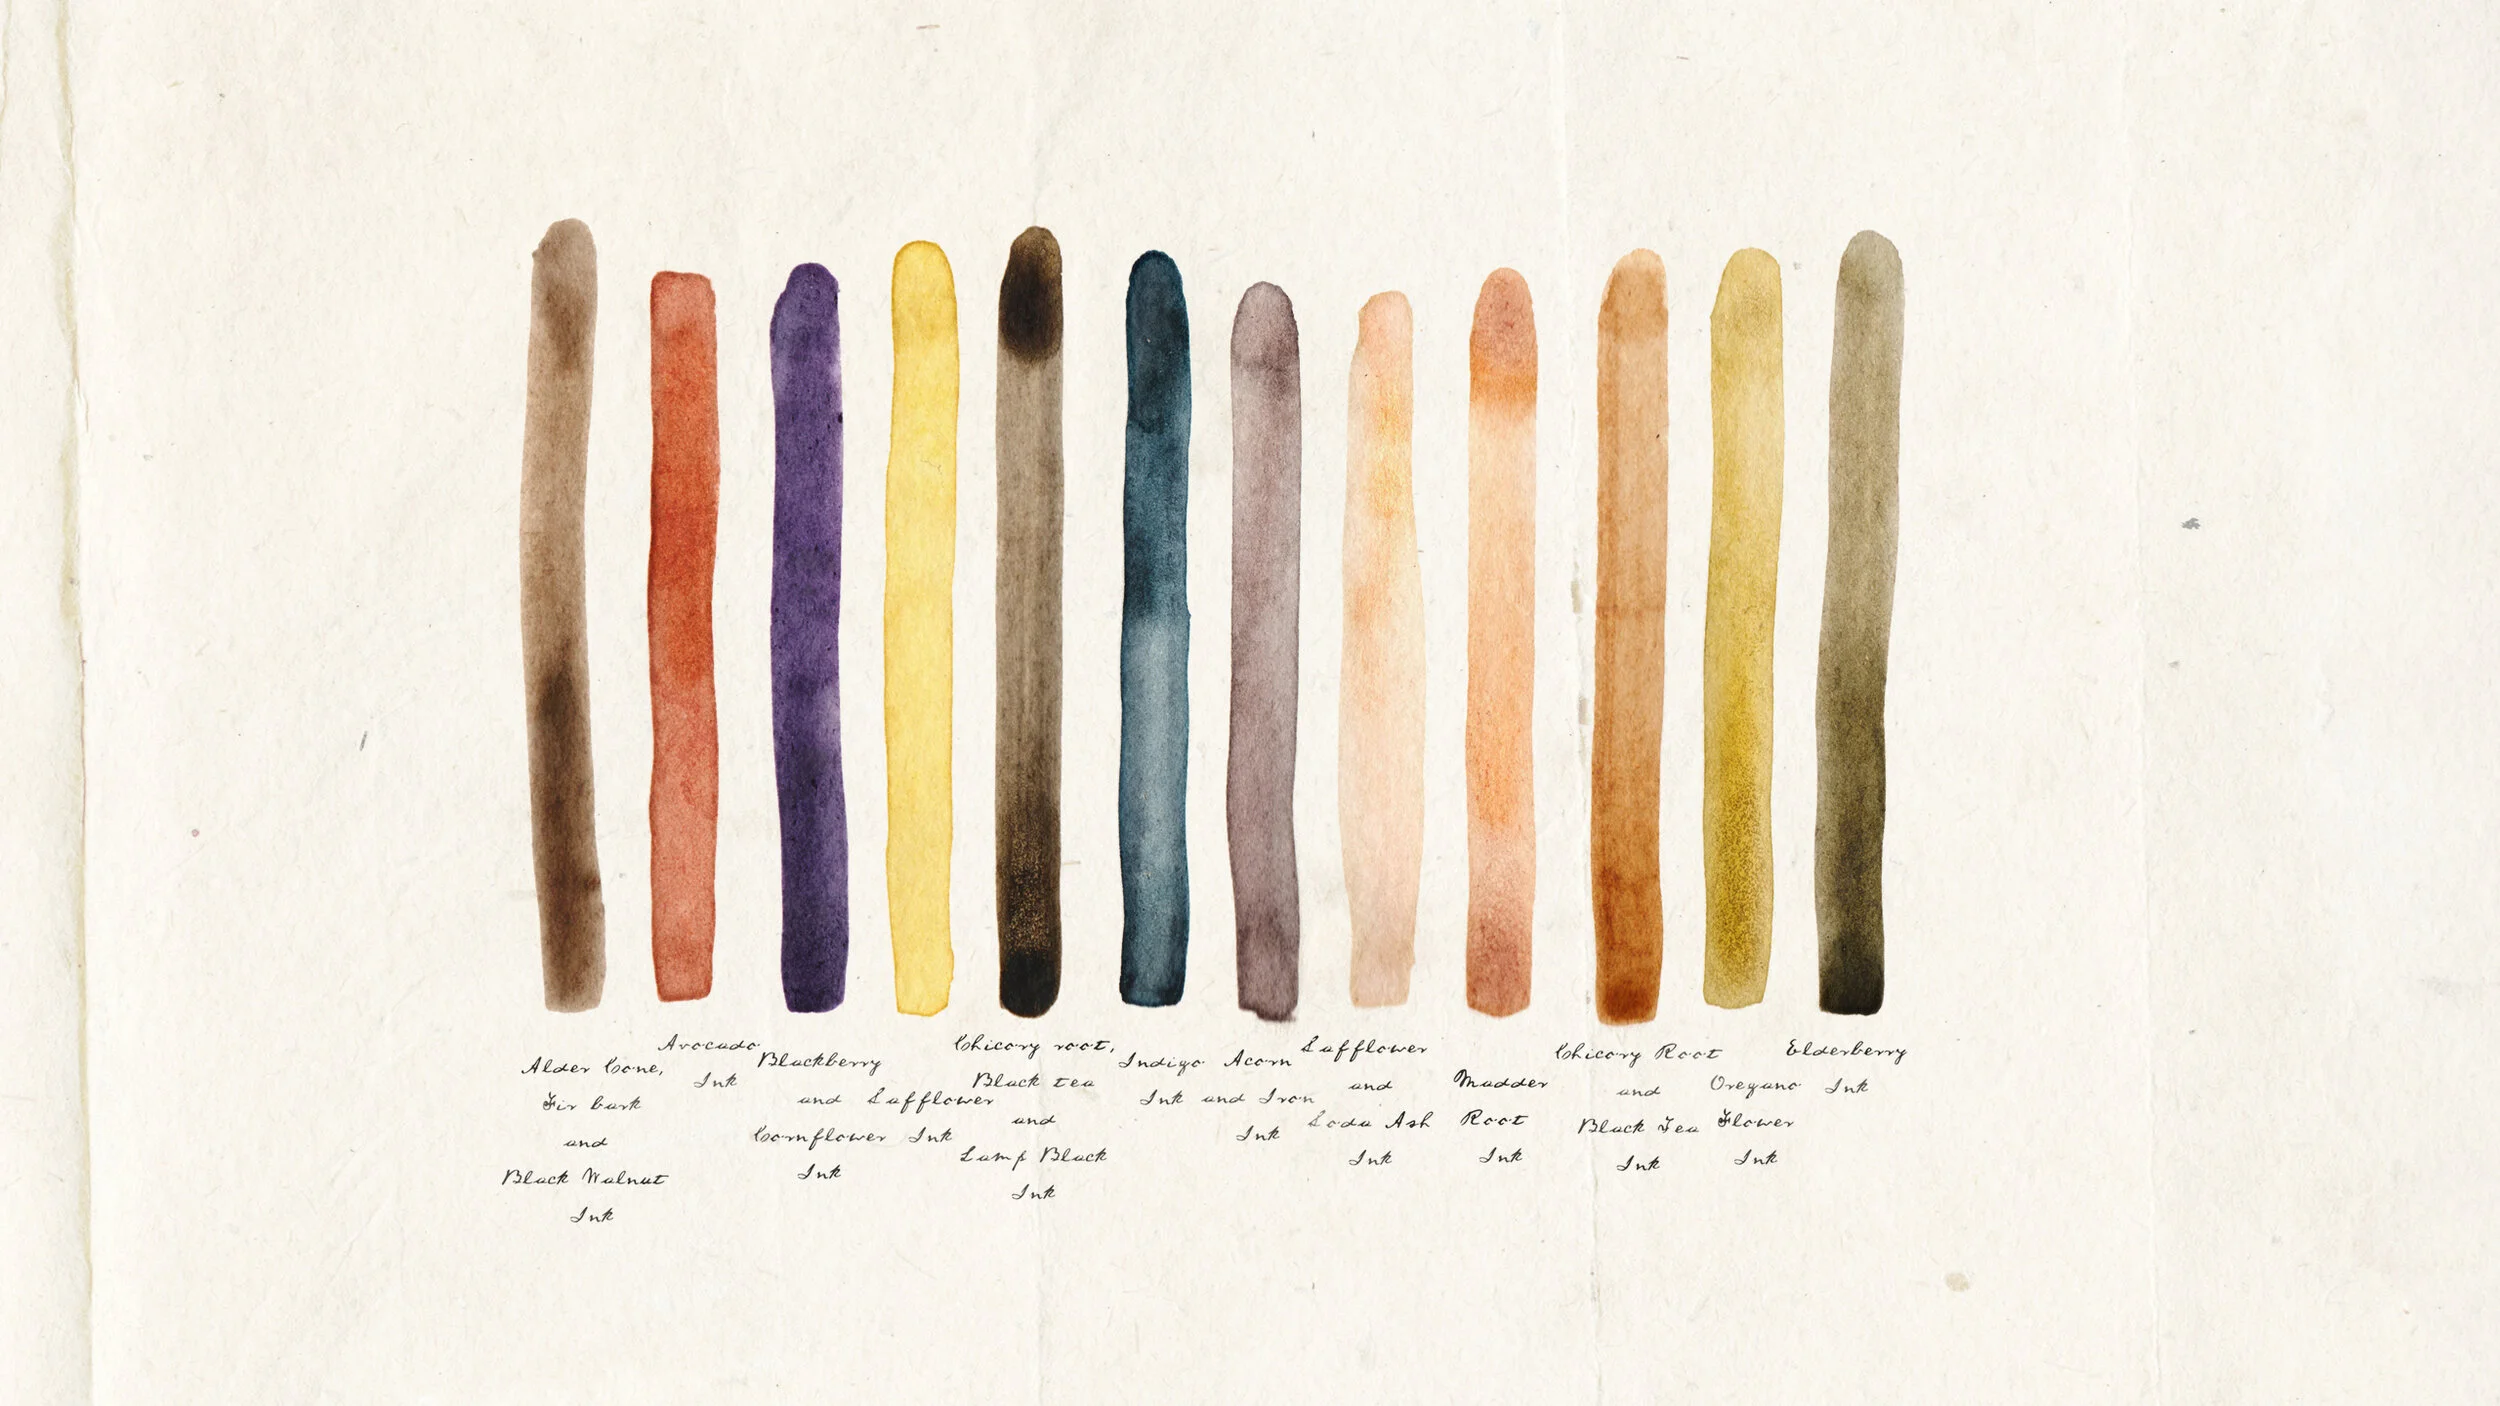 Alder Cone,
Fir bark
and
Black Walnut
Ink
Avocado
Ink
Blackberry
and
Cornflower
Ink
Safflower
Ink
Chicory root,
Black tea
and
Lamp Black
Ink
Indigo
Ink
Acorn
and Iron
Ink
Safflower
and
Soda Ash
Ink
Madder
Root
Ink
Chicory Root
and
Black Tea
Ink
Oregano
Flower
Ink
Elderberry
Ink